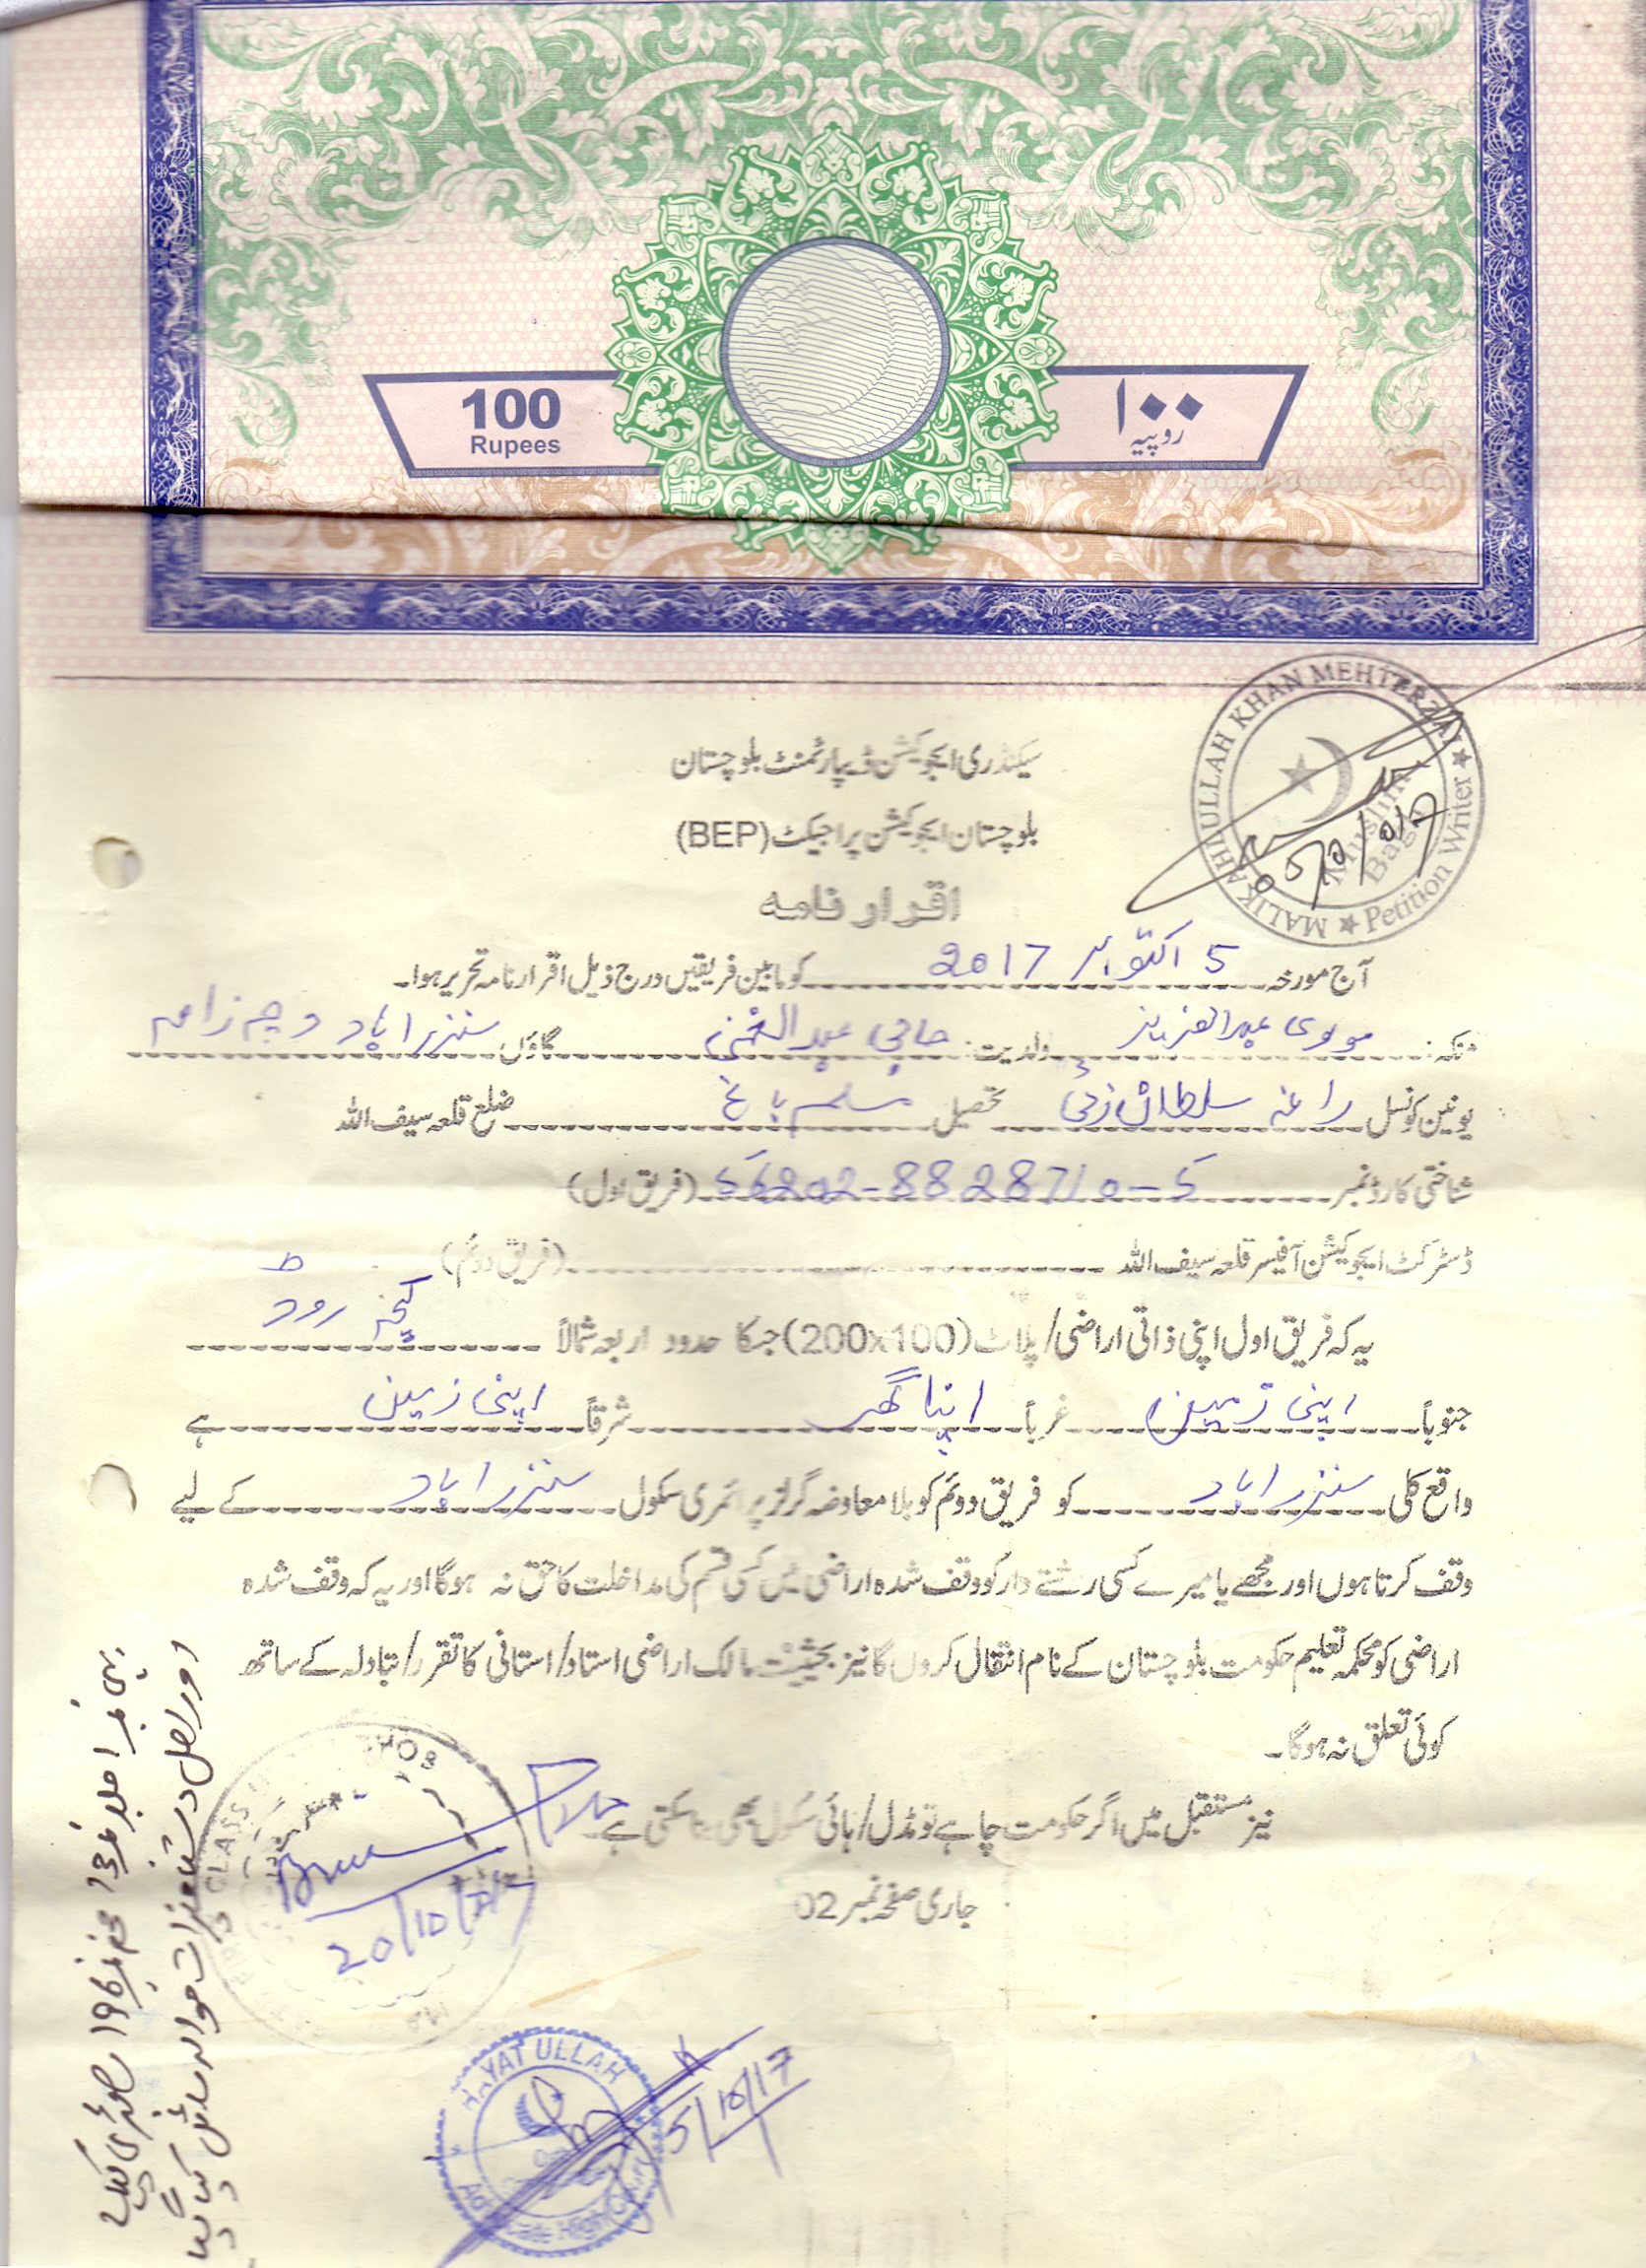 100
Rupees
۱۰۰
روپیہ
MALIK AHILULLAH KHAN MEHTERZAI ★ Petition Writer ★
Muslim Bagh
سیکنڈری ایجوکیشن ڈیپارٹمنٹ بلوچستان
بلوچستان ایجوکیشن پراجیکٹ (BEP)
اقرار نامہ
آج مورخہ 5 اکتوبر 2017 کو مابین فریقیں درج ذیل اقرار نامہ تحریر ہوا۔
منکہ: مولوی عبدالعزیز ولدیت: حاجی عبدالغنی گاؤں سنزراباد
یونین کونسل راغہ سلطانزئی تحصیل مسلم باغ ضلع قلعہ سیف اللہ
شناختی کارڈ نمبر 56202-8828710-5 (فریق اول)
ڈسٹرکٹ ایجوکیشن آفیسر قلعہ سیف اللہ (فریق دوئم)
یہ کہ فریق اول اپنی ذاتی اراضی/پلاٹ (200x100) جسکا حدود اربعہ شمالاً پختہ روڈ
جنوباً اپنی زمین غرباً اپنا گھر شرقاً اپنی زمین ہے
واقع کلی سنزراباد کو فریق دوئم کو بلا معاوضہ گرلز پرائمری سکول سنزراباد کے لیے
وقف کرتا ہوں اور مجھے یا میرے کسی رشتے دار کو وقف شدہ اراضی میں کسی قسم کی مداخلت کا حق نہ ہوگا اور یہ کہ وقف شدہ
اراضی کو محکمہ تعلیم حکومت بلوچستان کے نام انتقال کروں گا نیز بحیثیت مالک اراضی استاد/استانی کا تقرر/تبادلہ کے ساتھ
کوئی تعلق نہ ہوگا۔
نیز مستقبل میں اگر حکومت چاہے تو مڈل/ہائی سکول بھی بنا سکتی ہے۔
جاری صفحہ نمبر 02
20/10/2017
HAYAT ULLAH
Advocate High Court
5/10/17